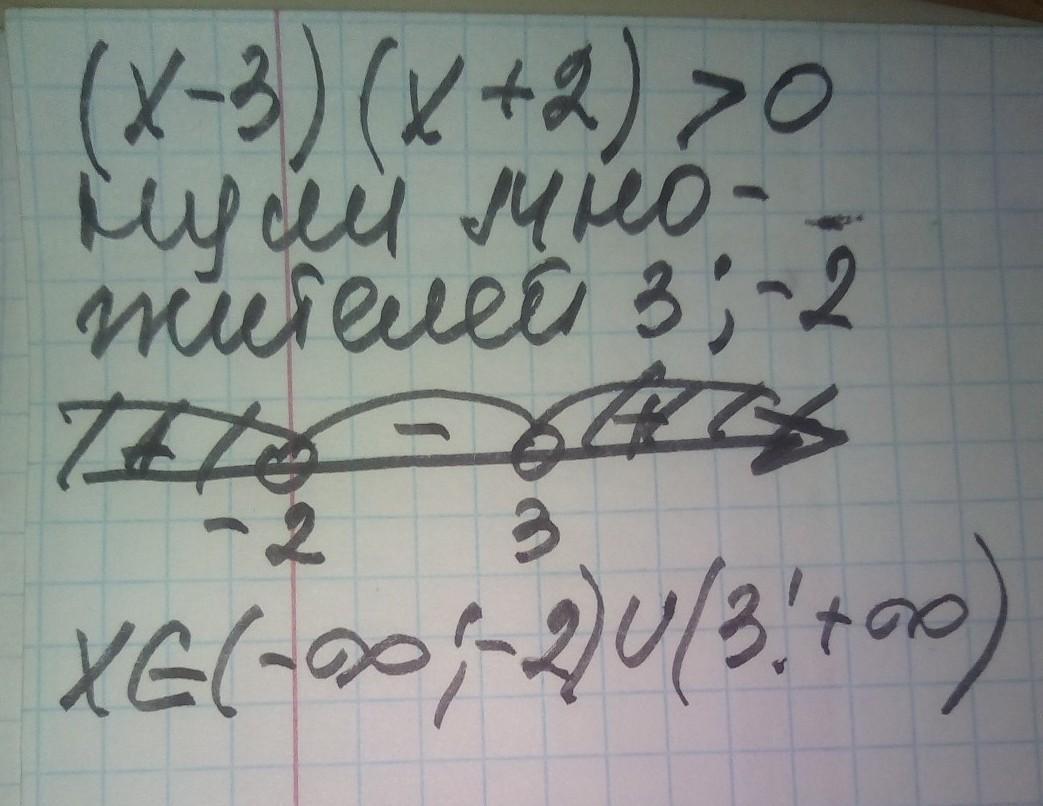 (x-3)(x+2)>0
нули мно-
жителей 3;-2
+ - +
-2 3
x∈(-∞;-2)∪(3;+∞)